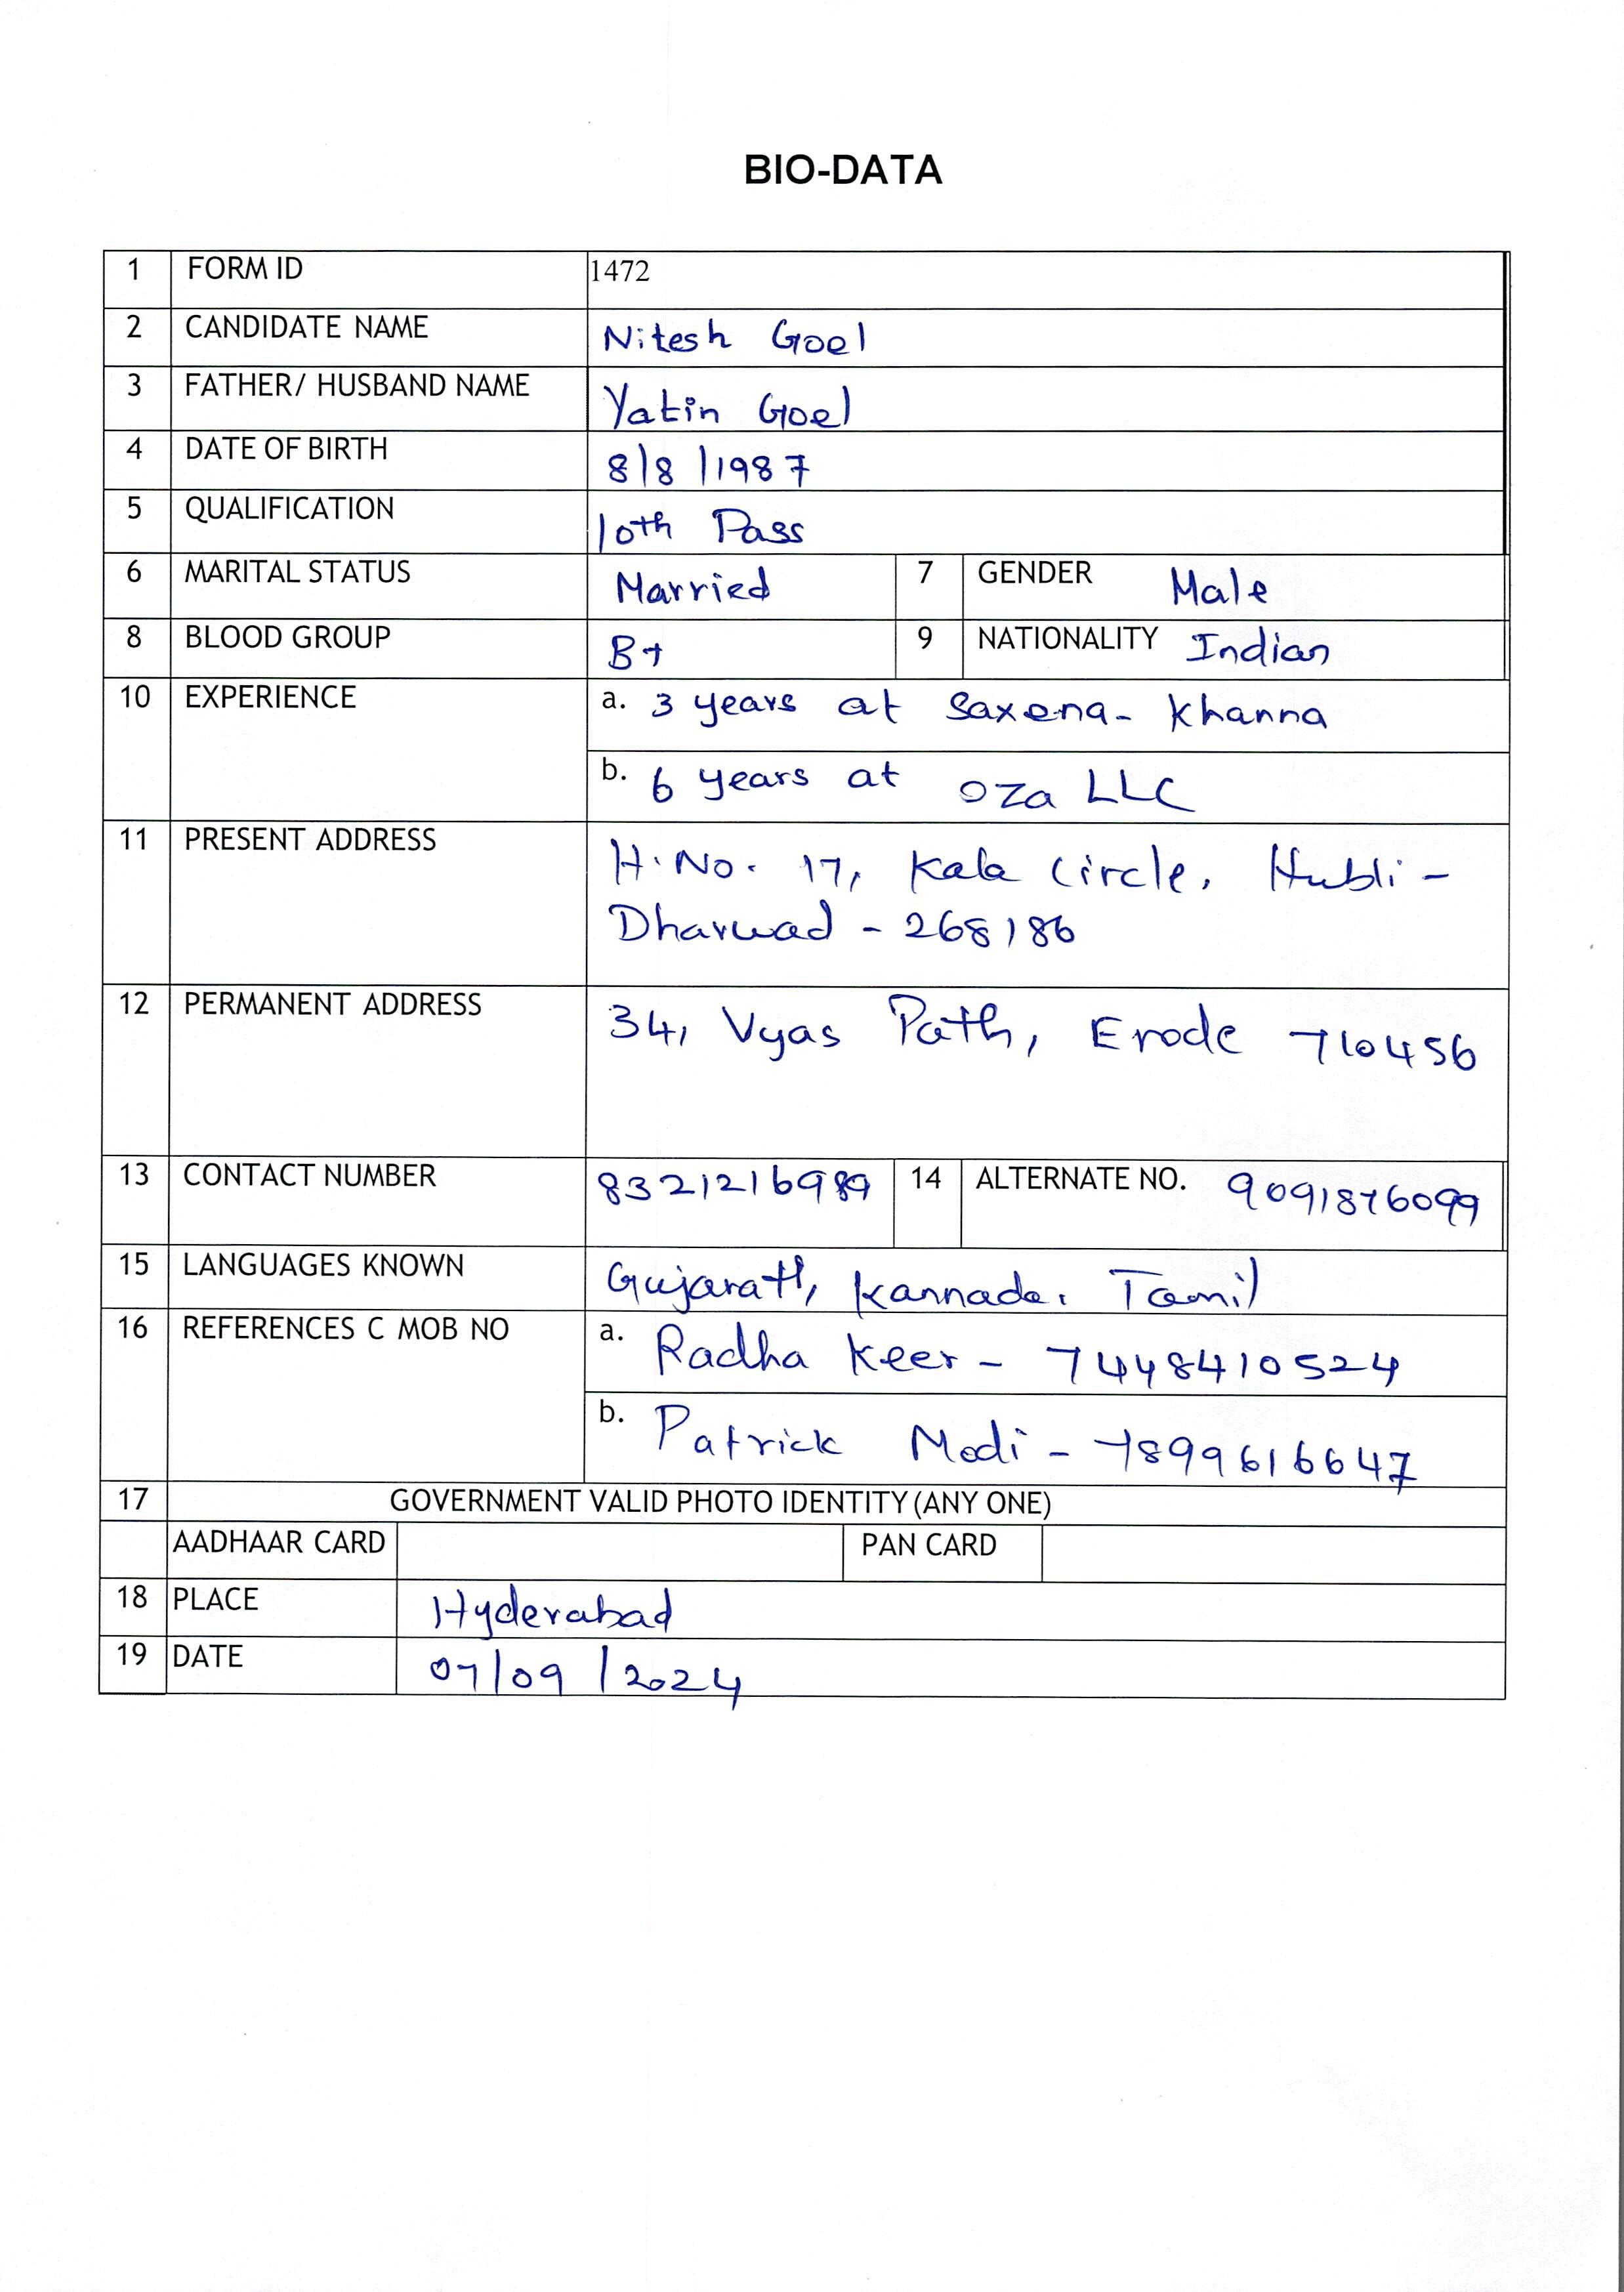 BIO-DATA
1 FORM ID 1472
2 CANDIDATE NAME Nitesh Goel
3 FATHER/ HUSBAND NAME Yatin Goel
4 DATE OF BIRTH 8/8/1987
5 QUALIFICATION 10th Pass
6 MARITAL STATUS Married 7 GENDER Male
8 BLOOD GROUP B+ 9 NATIONALITY Indian
10 EXPERIENCE a. 3 years at Saxena- Khanna
b. 6 years at Oza LLC
11 PRESENT ADDRESS H.No. 17, Kala Circle, Hubli -
Dharwad - 268186
12 PERMANENT ADDRESS 34, Vyas Path, Erode 710456
13 CONTACT NUMBER 8321216989 14 ALTERNATE NO. 9091876099
15 LANGUAGES KNOWN Gujarati, Kannada, Tamil
16 REFERENCES C MOB NO a. Radha Keer - 7448410524
b. Patrick Modi - 7899616647
17 GOVERNMENT VALID PHOTO IDENTITY (ANY ONE)
AADHAAR CARD PAN CARD
18 PLACE Hyderabad
19 DATE 07/09/2024